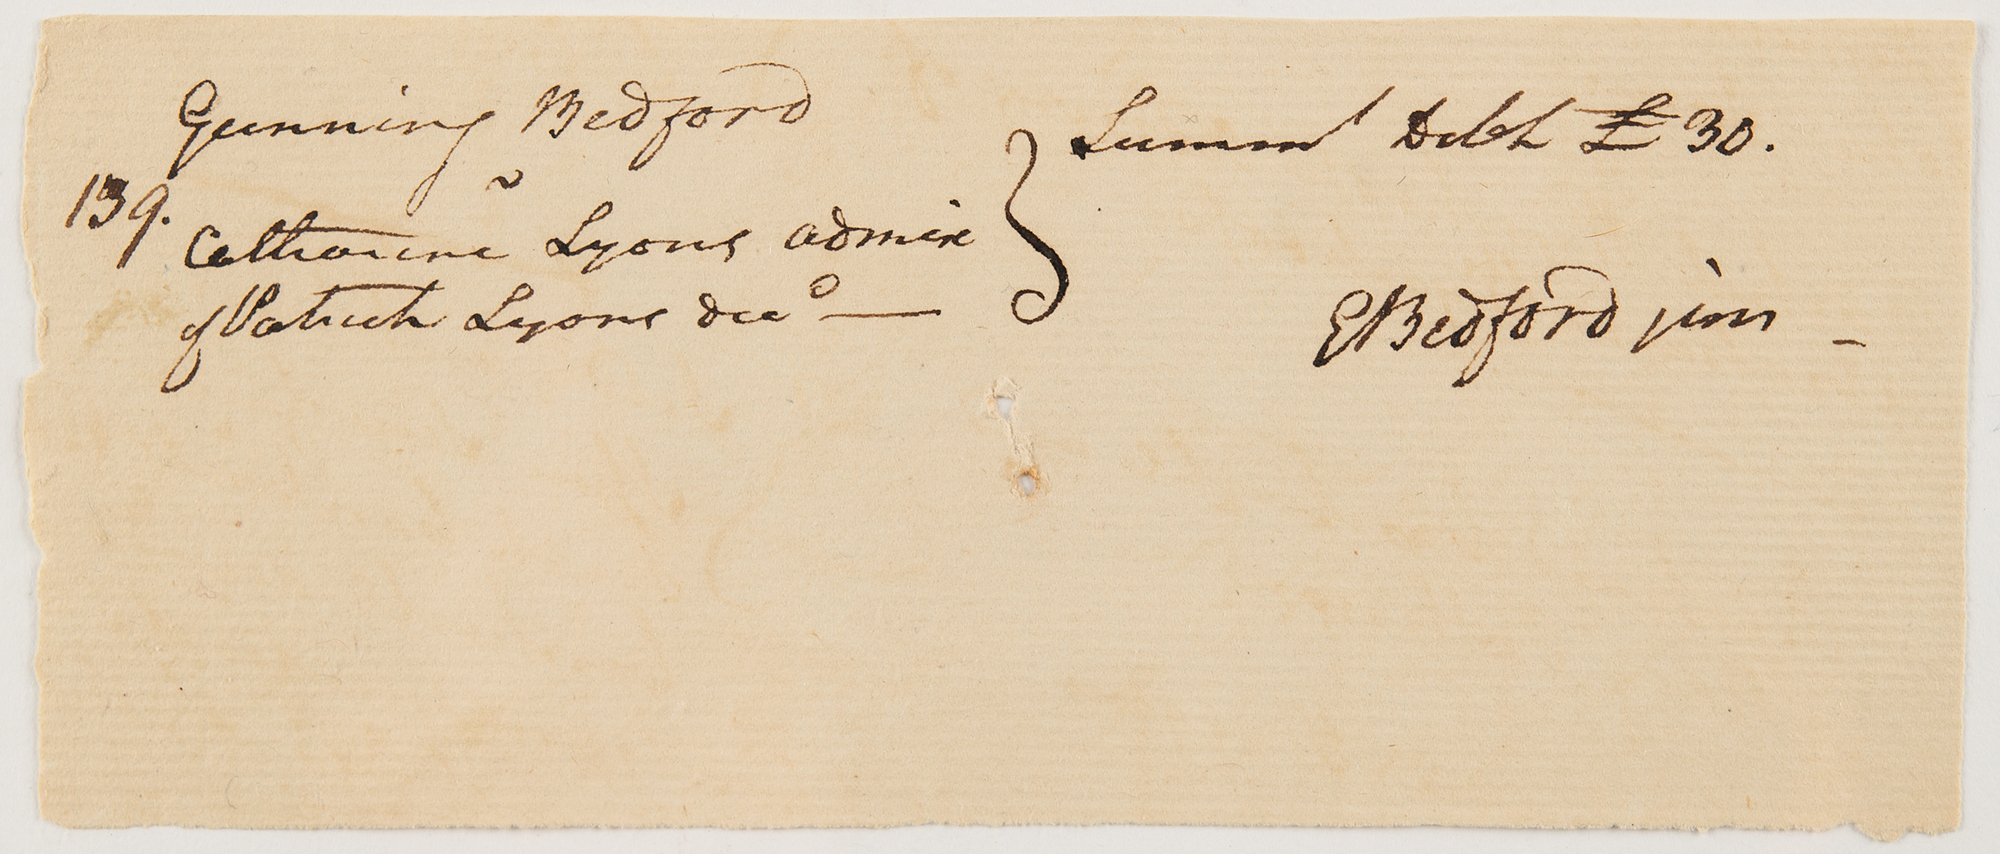 Gunning Bedford
v
139. Catharine Lyons admix
of Patrick Lyons decd
Summs Debt £ 30.
GBedford jun